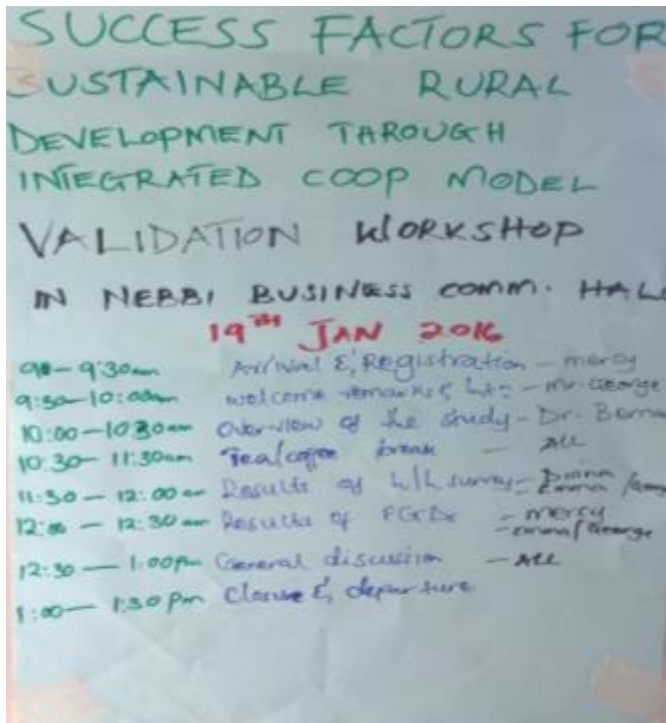 SUCCESS FACTORS FOR
SUSTAINABLE RURAL
DEVELOPMENT THROUGH
INTEGRATED COOP MODEL
VALIDATION WORKSHOP
IN NEBBI BUSINESS COMM. HALL
19TH JAN 2016
9:30am Arrival &, Registration - mercy
9:30-10:00am welcome remarks - Mr. George
10:00-10:30am Overview of the study - Dr.
10:30-11:30am Tea/coffee break - ALL
11:30-12:00 Results of H/H survey - Diana
Emma
12:00-12:30am Results of FGDs - mercy
- Emma/George
12:30-1:00pm General discussion - ALL
1:00-1:30pm Closure &, departure